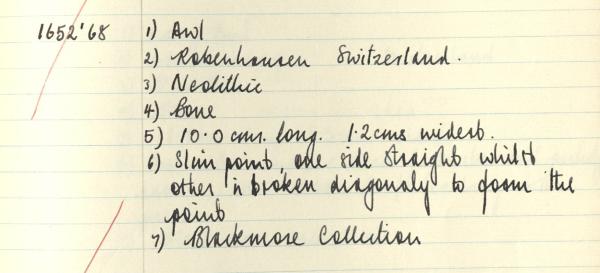 1652'68 1) Awl
2) Robenhausen Switzerland.
3) Neolithic
4) Bone
5) 10.0 cms. long. 1.2 cms widest.
6) Slim point, one side straight whilst
other is broken diagonaly to form the
point
7) Blackmore Collection